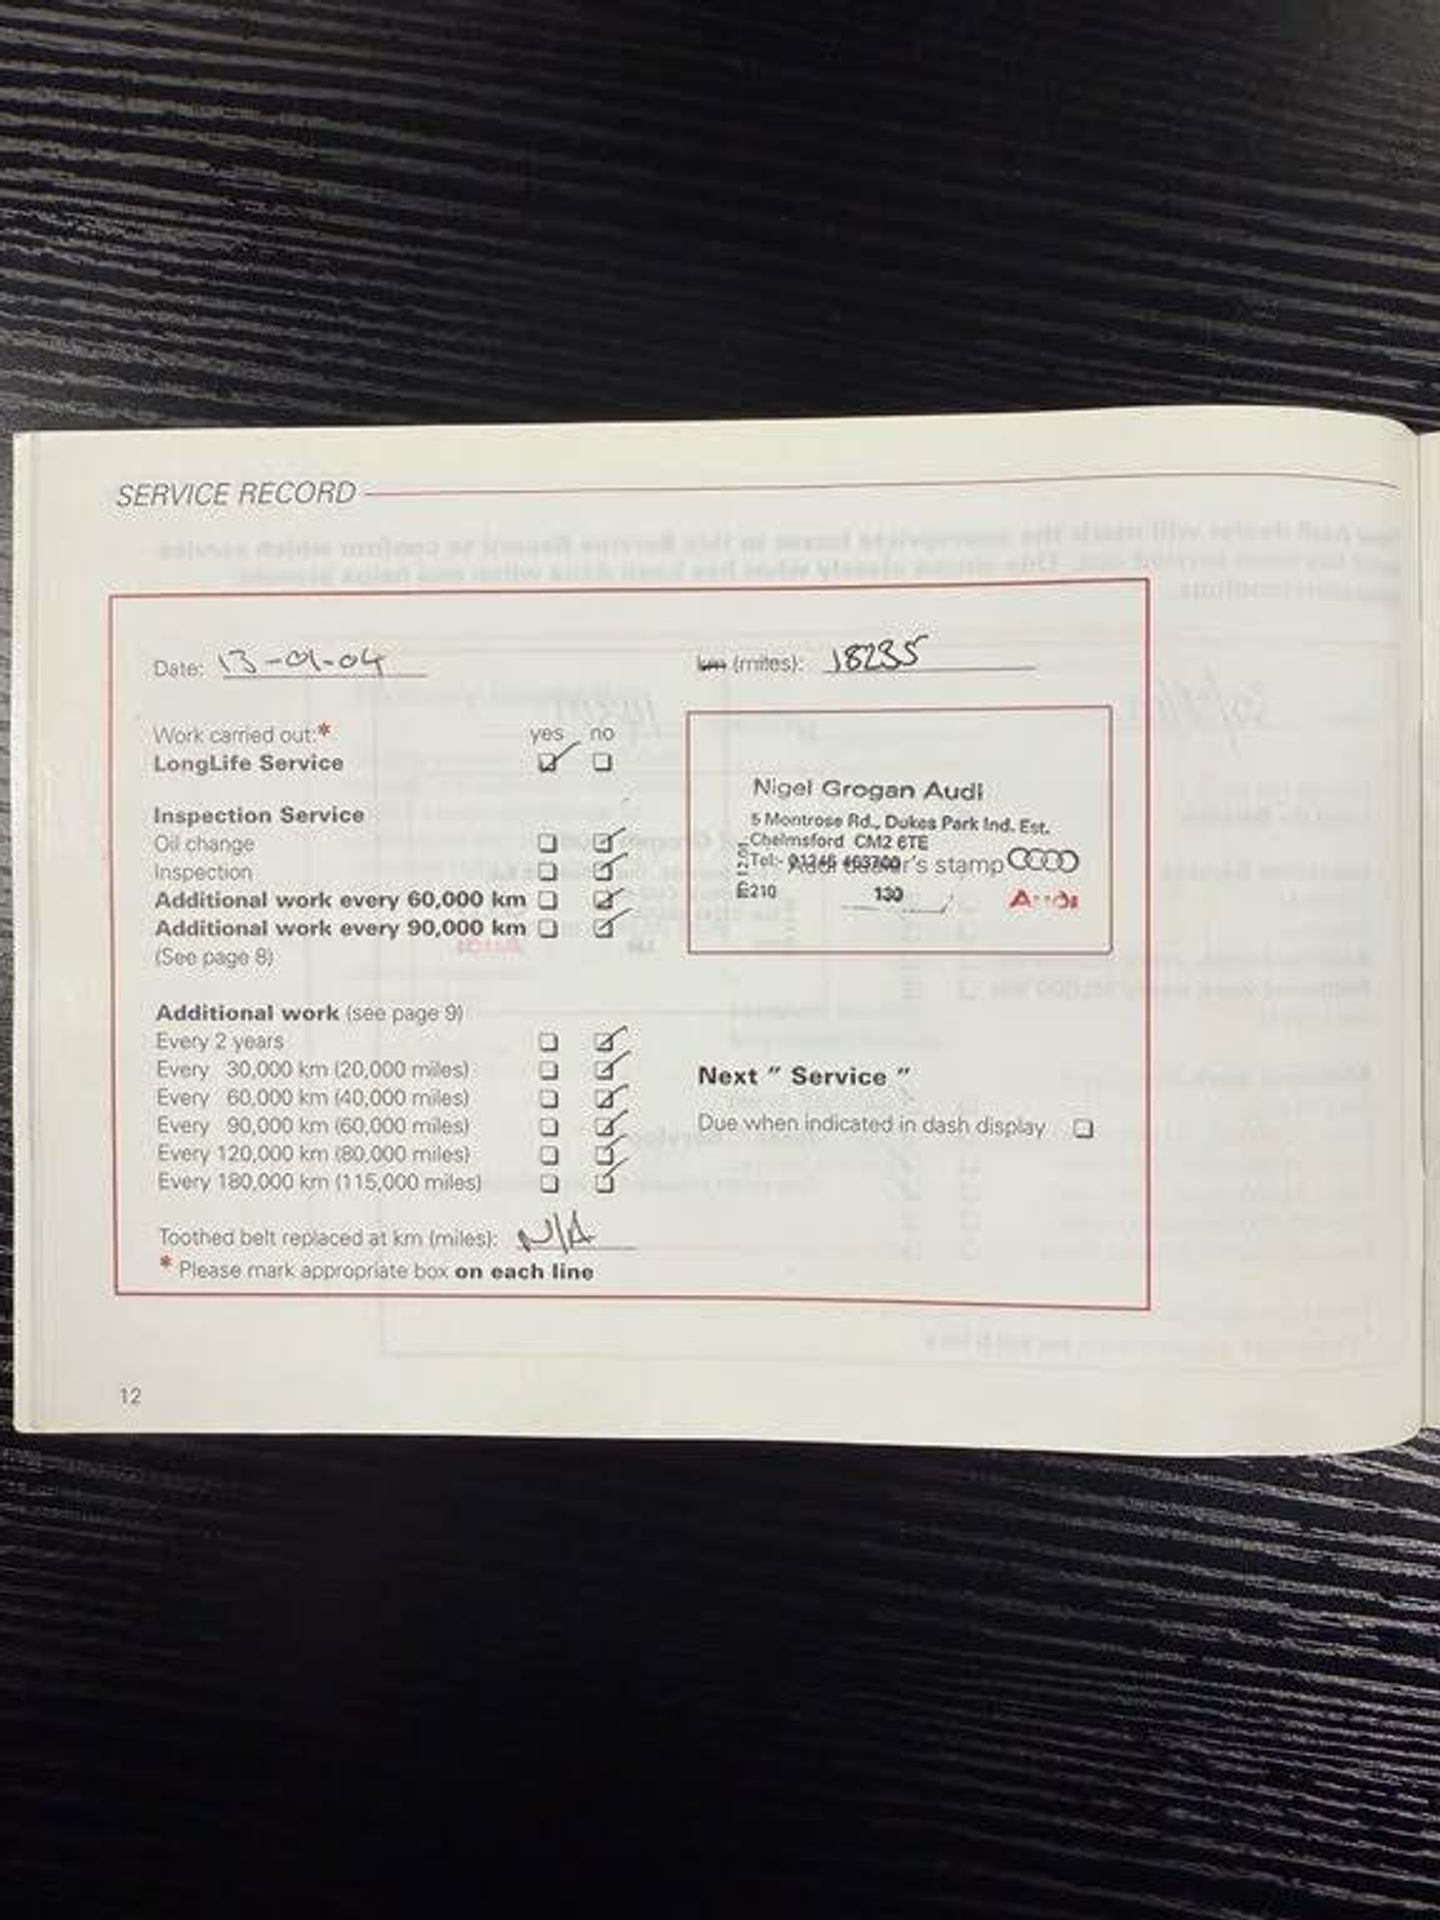 SERVICE RECORD
Date: 13-01-04
km (miles): 18235
Work carried out:* yes no
LongLife Service
Inspection Service
Oil change
Inspection
Additional work every 60,000 km
Additional work every 90,000 km
(See page 8)
Nigel Grogan Audi
5 Montrose Rd., Dukes Park Ind. Est.
Chelmsford CM2 6TE
Tel:- 01245 463700
Audi dealer's stamp
210 130 Audi
Additional work (see page 9)
Every 2 years
Every 30,000 km (20,000 miles)
Every 60,000 km (40,000 miles)
Every 90,000 km (60,000 miles)
Every 120,000 km (80,000 miles)
Every 180,000 km (115,000 miles)
Next " Service "
Due when indicated in dash display
Toothed belt replaced at km (miles): N/A
* Please mark appropriate box on each line
12